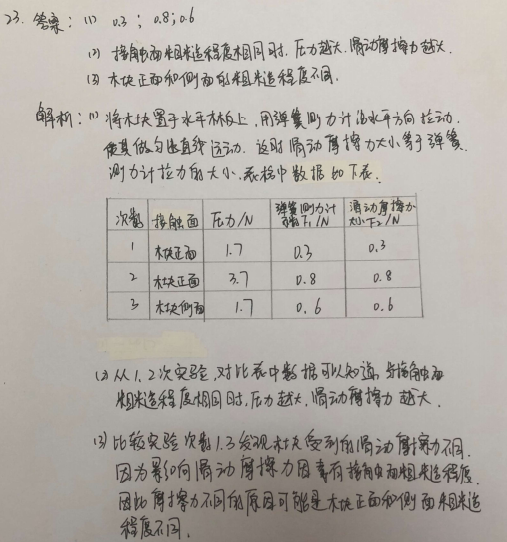 23. 答案: (1) 0.3 ; 0.8; 0.6
(2) 接触面粗糙程度相同时, 压力越大, 滑动摩擦力越大.
(3) 木块正面和侧面的粗糙程度不同.
解析: (1) 将木块置于水平木板上, 用弹簧测力计沿水平方向拉动,
使其做匀速直线运动. 这时滑动摩擦力大小等于弹簧
测力计拉力的大小. 表格中数据如下表.
次数 接触面 压力/N 弹簧测力计 F₁/N 滑动摩擦力大小F₂/N
1 木块正面 1.7 0.3 0.3
2 木块正面 3.7 0.8 0.8
3 木块侧面 1.7 0.6 0.6
(2) 从1、2次实验, 对比表中数据可以知道, 当接触面
粗糙程度相同时, 压力越大, 滑动摩擦力越大.
(3) 比较实验次数1.3发现木块受到的滑动摩擦力不同.
因为影响滑动摩擦力因素有接触面粗糙程度.
因此摩擦力不同的原因可能是木块正面和侧面粗糙
程度不同.